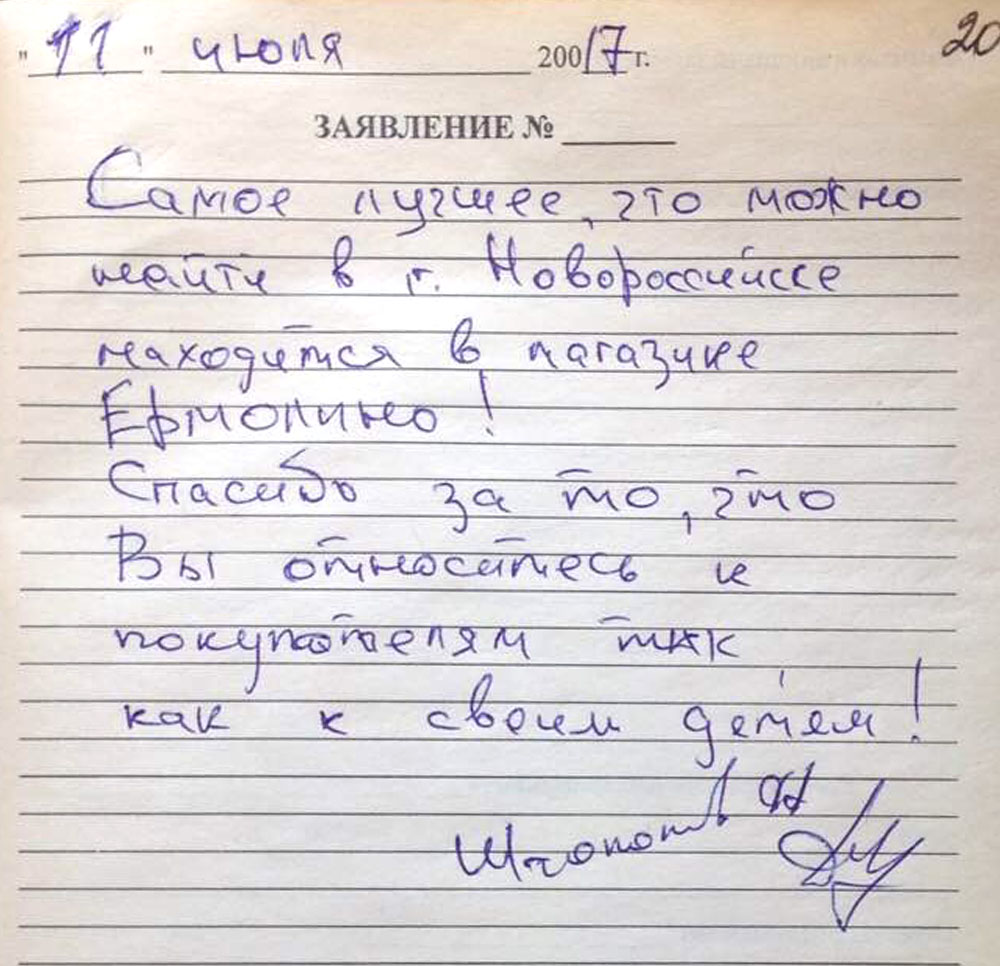 " 11 " июля 20017 г. 20
ЗАЯВЛЕНИЕ № ____
Самое лучшее, что можно
найти в г. Новороссийске
находится в магазине
Ермолино!
Спасибо за то, что
Вы относитесь к
покупателям так
как к своим детям!